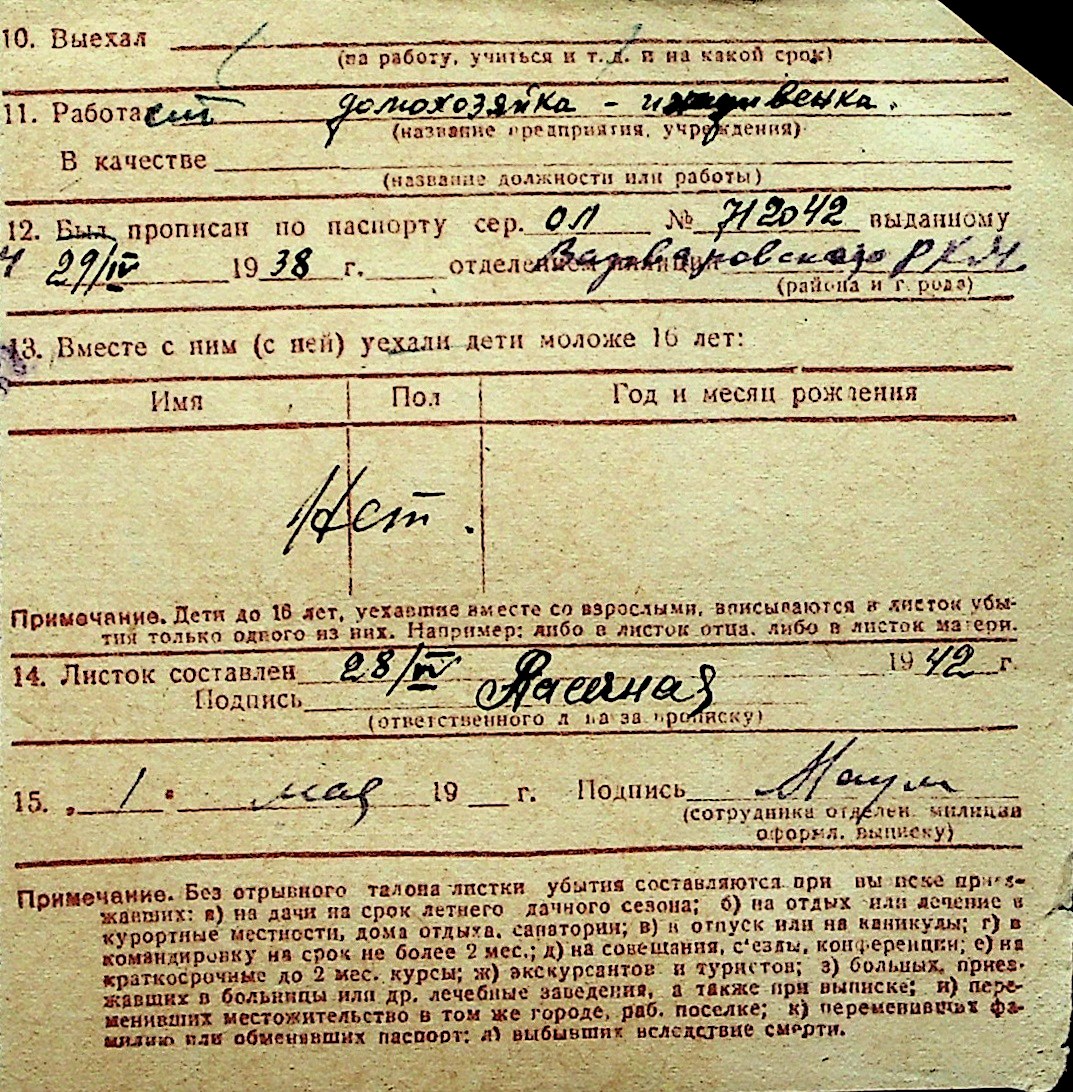 10. Выехал
(на работу, учиться и т. д. и на какой срок)
11. Работает домохозяйка - иждивенка.
(название предприятия, учреждения)
В качестве
(название должности или работы)
12. Был прописан по паспорту сер. ОЛ № 712042 выданному
29/IV 1938 г. отделением милиции Варваровского РКМ
(района и города)
13. Вместе с ним (с ней) уехали дети моложе 16 лет:
Имя Пол Год и месяц рождения
Нет.
Примечание. Дети до 16 лет, уехавшие вместе со взрослыми, вписываются в листок убы-
тия только одного из них. Например: либо в листок отца, либо в листок матери.
14. Листок составлен 28/IV 1942 г.
Подпись
(ответственного лица за прописку)
15. „1" мая 19 г. Подпись
(сотрудника отделен. милиции
оформл. выписку)
Примечание. Без отрывного талона листки убытия составляются при выписке приез-
жавших: а) на дачи на срок летнего дачного сезона; б) на отдых или лечение в
курортные местности, дома отдыха, санатории; в) в отпуск или на каникулы; г) в
командировку на срок не более 2 мес.; д) на совещания, с'езды, конференции; е) на
краткосрочные до 2 мес. курсы; ж) экскурсантов и туристов; з) больных, приез-
жавших в больницы или др. лечебные заведения, а также при выписке; и) пере-
менивших местожительство в том же городе, раб. поселке; к) переменивших фа-
милию или обменявших паспорт; л) выбывших вследствие смерти.